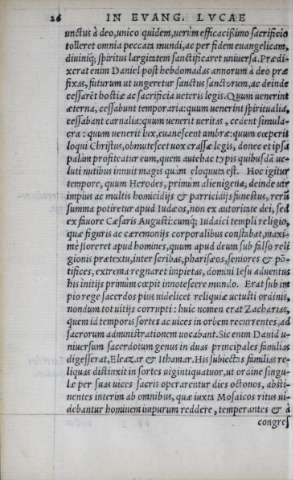 26 IN EVANG. LVCAE
unctus à deo, unico quidem, uerùm efficacissimo sacrificio
tolleret omnia peccata mundi, ac per fidem euangelicam,
diuiniq; spiritus largitatem sanctificaret uniuersa. Prædi-
xerat enim Daniel post hebdomadas annorum à deo præ
fixas, futurum ut ungeretur sanctus sanctorum, ac deinde
cessarēt hostiæ ac sacrificia ueteris legis. Quum uenerint
æterna, cessabunt temporaria: quum uenerint spiritualia,
cessabunt carnalia: quum uenerit ueritas, cedent simula-
cra: quum uenerit lux, euanescent umbræ: quum cœperit
loqui Christus, obmutescet uox crassæ legis, donec et ipsa
palàm profiteatur eum, quem antehac typis quibusdā ue-
luti nutibus innuit magis quàm eloquuta est. Hoc igitur
tempore, quum Herodes, primum alienigena, deinde uir
impius ac multis homicidijs & parricidijs funestus, rerū
summa potiretur apud Iudæos, non ex autoritate dei, sed
ex fauore Cæsaris Augusti: cumq; Iudaici templi religio,
quæ figuris ac cæremonijs corporalibus constabat, maxi-
mè floreret apud homines, quum apud deum sub falso reli
gionis prætextu, inter scribas, pharisæos, seniores & pō-
tifices, extrema regnaret impietas, domini Iesu aduentus
his initijs primùm cœpit innotescere mundo. Erat sub im
pio rege sacerdos pius uidelicet reliquiæ uetusti ordinis,
nondum tot uitijs corrupti: huic nomen erat Zacharias,
quem id temporis sortes ac uices in orbem recurrentes, ad
sacrorum administrationem uocabant. Sic enim Dauid u-
niuersum sacerdotum genus in duas principales familias
digesserat, Eleazar & Ithamar. His subiectas familias re-
liquas distinxit in sortes uigintiquatuor, ut oraine singu-
læ per suas uices sacris operarentur dies octonos, absti-
nentes interim ab omnibus, quæ iuxta Mosaicos ritus ui-
debantur hominem impurum reddere, temperantes & à
congres